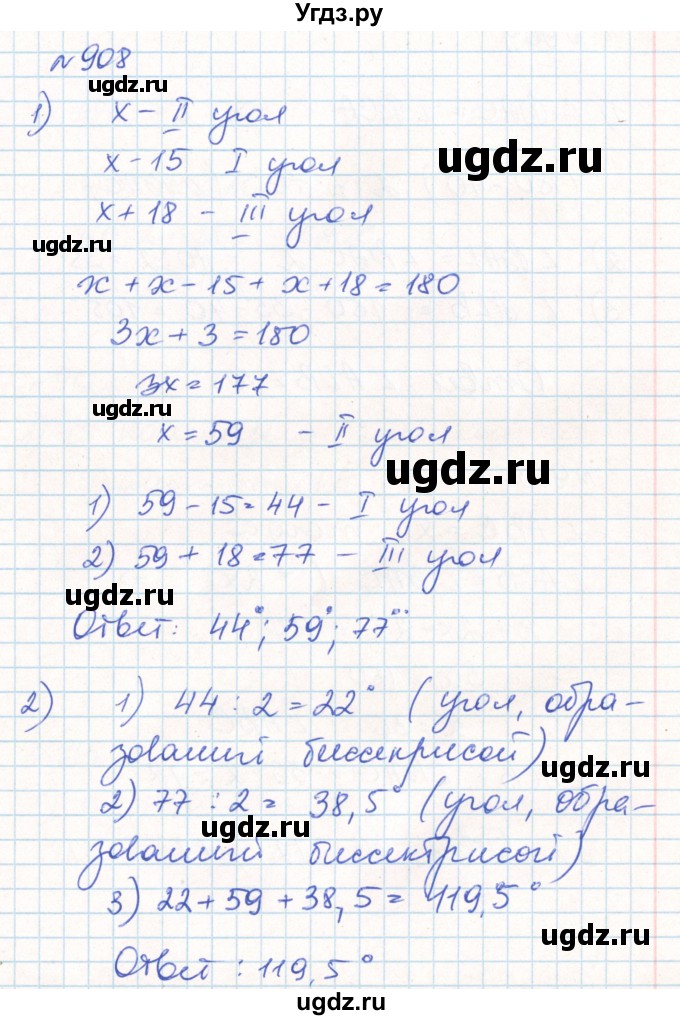 Угдз.ру
№908
ugdz.ru
1) x - II угол
ugdz.ru
x - 15 I угол
x + 18 - III угол
ugdz.ru
x + x - 15 + x + 18 = 180
3x + 3 = 180
3x = 177
ugdz.ru
x = 59 - II угол
ugdz.ru
1) 59 - 15 = 44 - I угол
2) 59 + 18 = 77 - III угол
ugdz.ru
Ответ: 44°; 59°; 77°
2) 1) 44 : 2 = 22° (угол, обра-
зованный биссекрисой)
ugdz.ru
2) 77 : 2 = 38,5° (угол, обра-
ugdz.ru
зованный биссектрисой)
3) 22 + 59 + 38,5 = 119,5°
ugdz.ru
Ответ: 119,5°
ugdz.ru